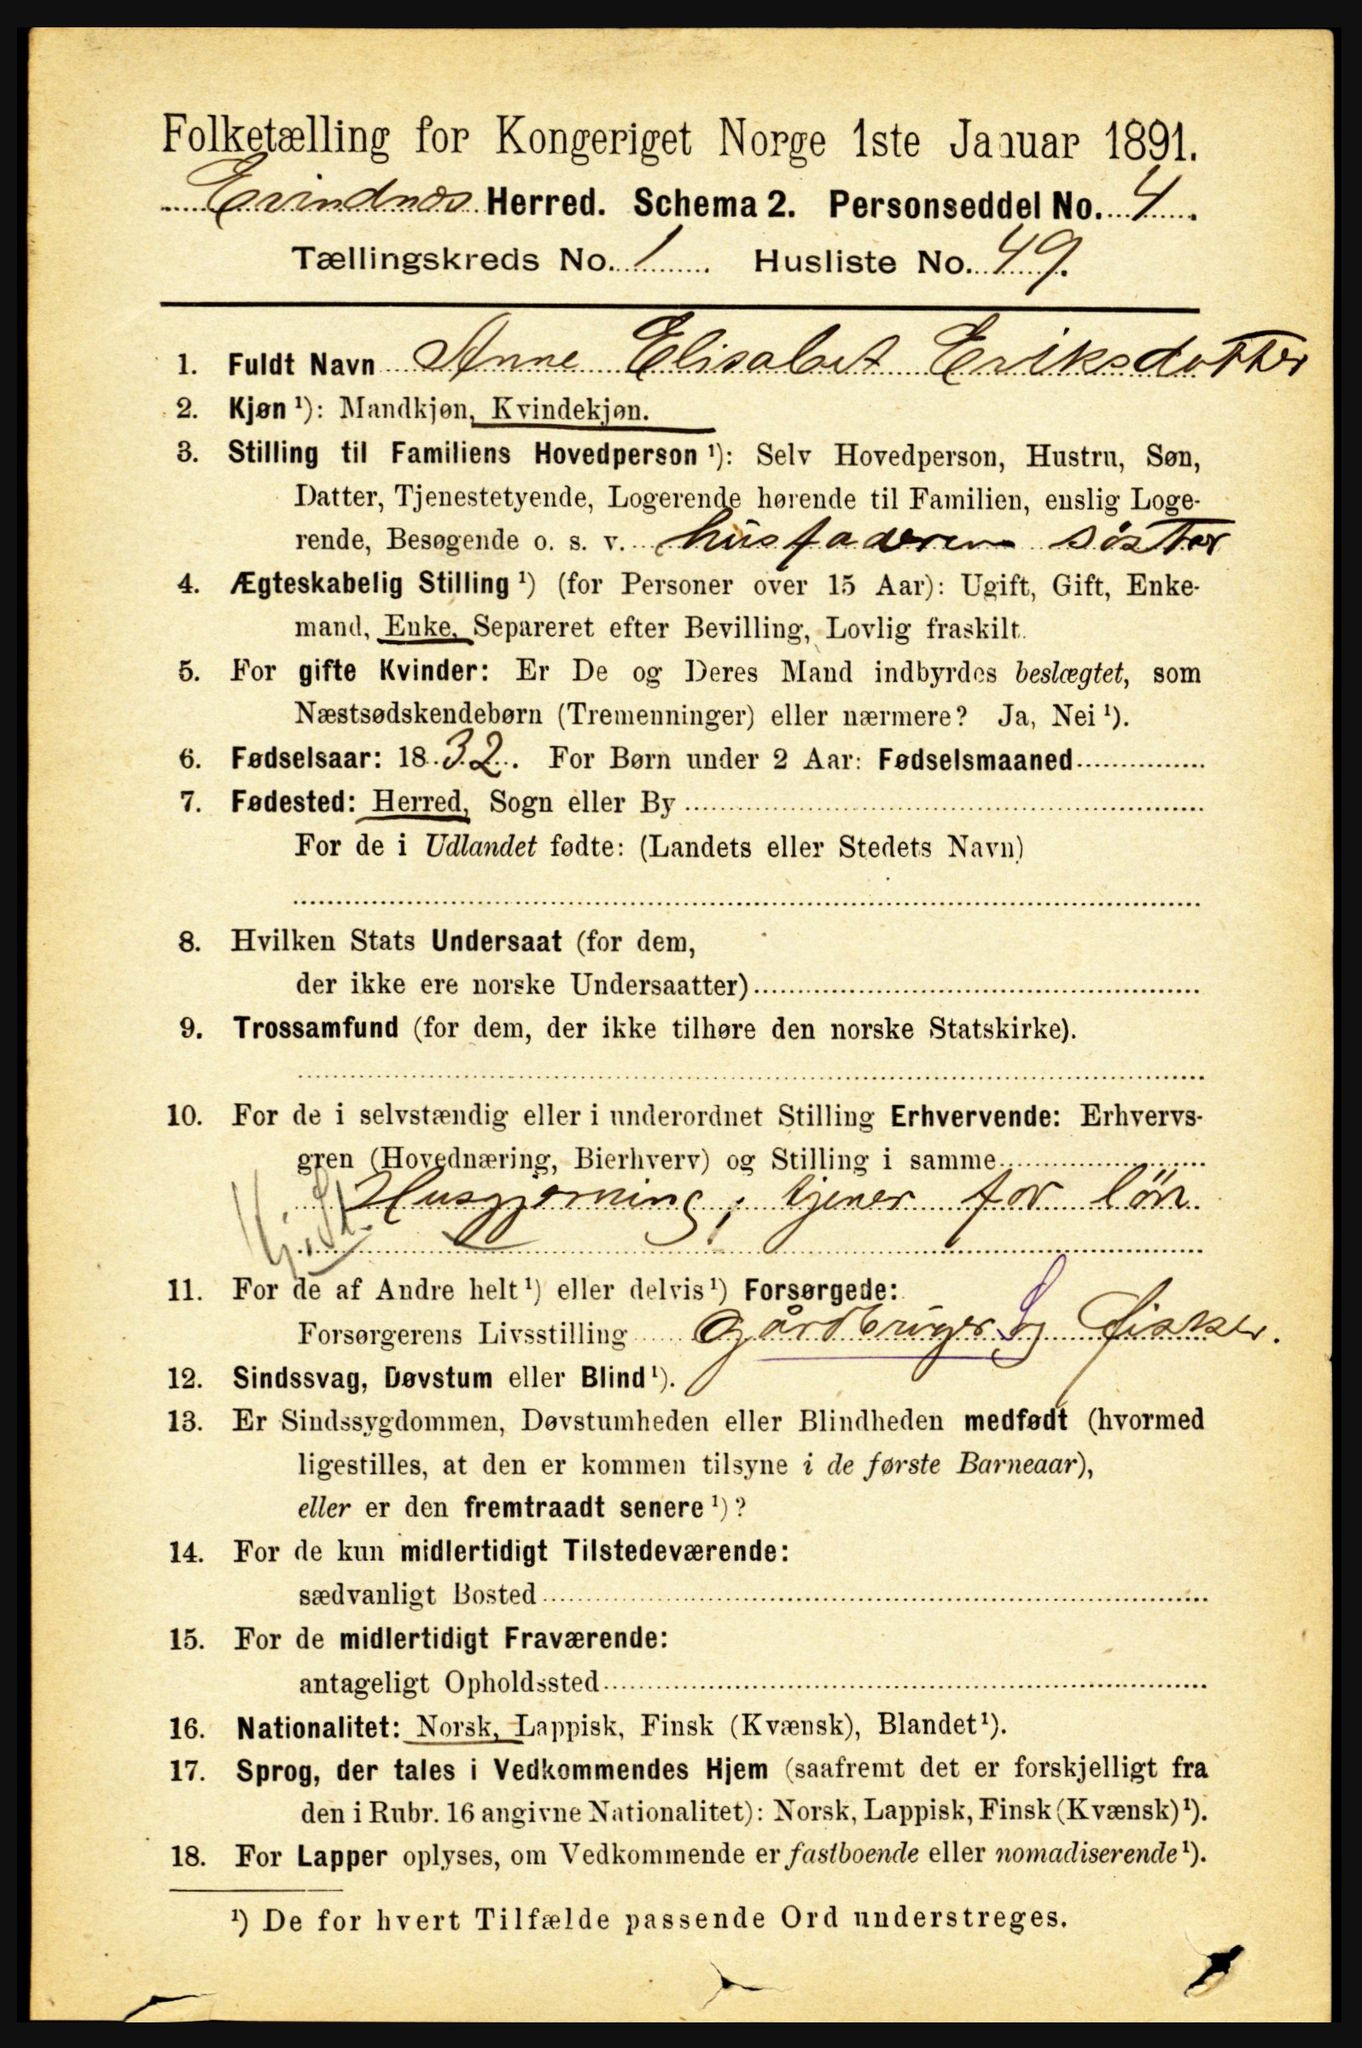 Folketælling for Kongeriget Norge 1ste Januar 1891.
Evindnæs Herred. Schema 2. Personseddel No. 4.
Tællingskreds No. 1 Husliste No. 49.
1. Fuldt Navn Anne Elisabet Eriksdotter
2. Kjøn ¹): Mandkjøn, Kvindekjøn.
3. Stilling til Familiens Hovedperson ¹): Selv Hovedperson, Hustru, Søn,
Datter, Tjenestetyende, Logerende hørende til Familien, enslig Loge-
rende, Besøgende o. s. v. husfaderens søster
4. Ægteskabelig Stilling ¹) (for Personer over 15 Aar): Ugift, Gift, Enke-
mand, Enke, Separeret efter Bevilling, Lovlig fraskilt.
5. For gifte Kvinder: Er De og Deres Mand indbyrdes beslægtet, som
Næstsødskendebørn (Tremenninger) eller nærmere? Ja, Nei ¹).
6. Fødselsaar: 1832. For Børn under 2 Aar: Fødselsmaaned
7. Fødested: Herred, Sogn eller By
For de i Udlandet fødte: (Landets eller Stedets Navn)
8. Hvilken Stats Undersaat (for dem,
der ikke ere norske Undersaatter)
9. Trossamfund (for dem, der ikke tilhøre den norske Statskirke).
10. For de i selvstændig eller i underordnet Stilling Erhvervende: Erhvervs-
gren (Hovednæring, Bierhverv) og Stilling i samme
Husgjerning; tjener for løn
11. For de af Andre helt ¹) eller delvis ¹) Forsørgede:
Forsørgerens Livsstilling gårdbruger og fisker.
12. Sindssvag, Døvstum eller Blind ¹).
13. Er Sindssygdommen, Døvstumheden eller Blindheden medfødt (hvormed
ligestilles, at den er kommen tilsyne i de første Barneaar),
eller er den fremtraadt senere ¹)?
14. For de kun midlertidigt Tilstedeværende:
sædvanligt Bosted
15. For de midlertidigt Fraværende:
antageligt Opholdssted
16. Nationalitet: Norsk, Lappisk, Finsk (Kvænsk), Blandet ¹).
17. Sprog, der tales i Vedkommendes Hjem (saafremt det er forskjelligt fra
den i Rubr. 16 angivne Nationalitet): Norsk, Lappisk, Finsk (Kvænsk) ¹).
18. For Lapper oplyses, om Vedkommende er fastboende eller nomadiserende ¹).
¹) De for hvert Tilfælde passende Ord understreges.